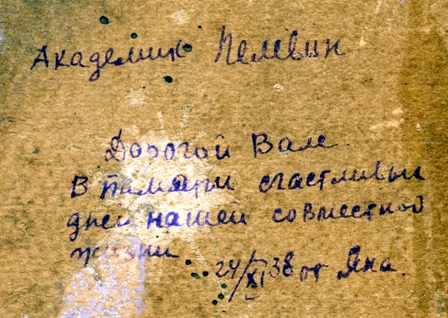 Академик Пелевин
Дорогой Вале.
В памяти счастливы
дней нашей совместной
жизни.
24/XI 38 от Яна.